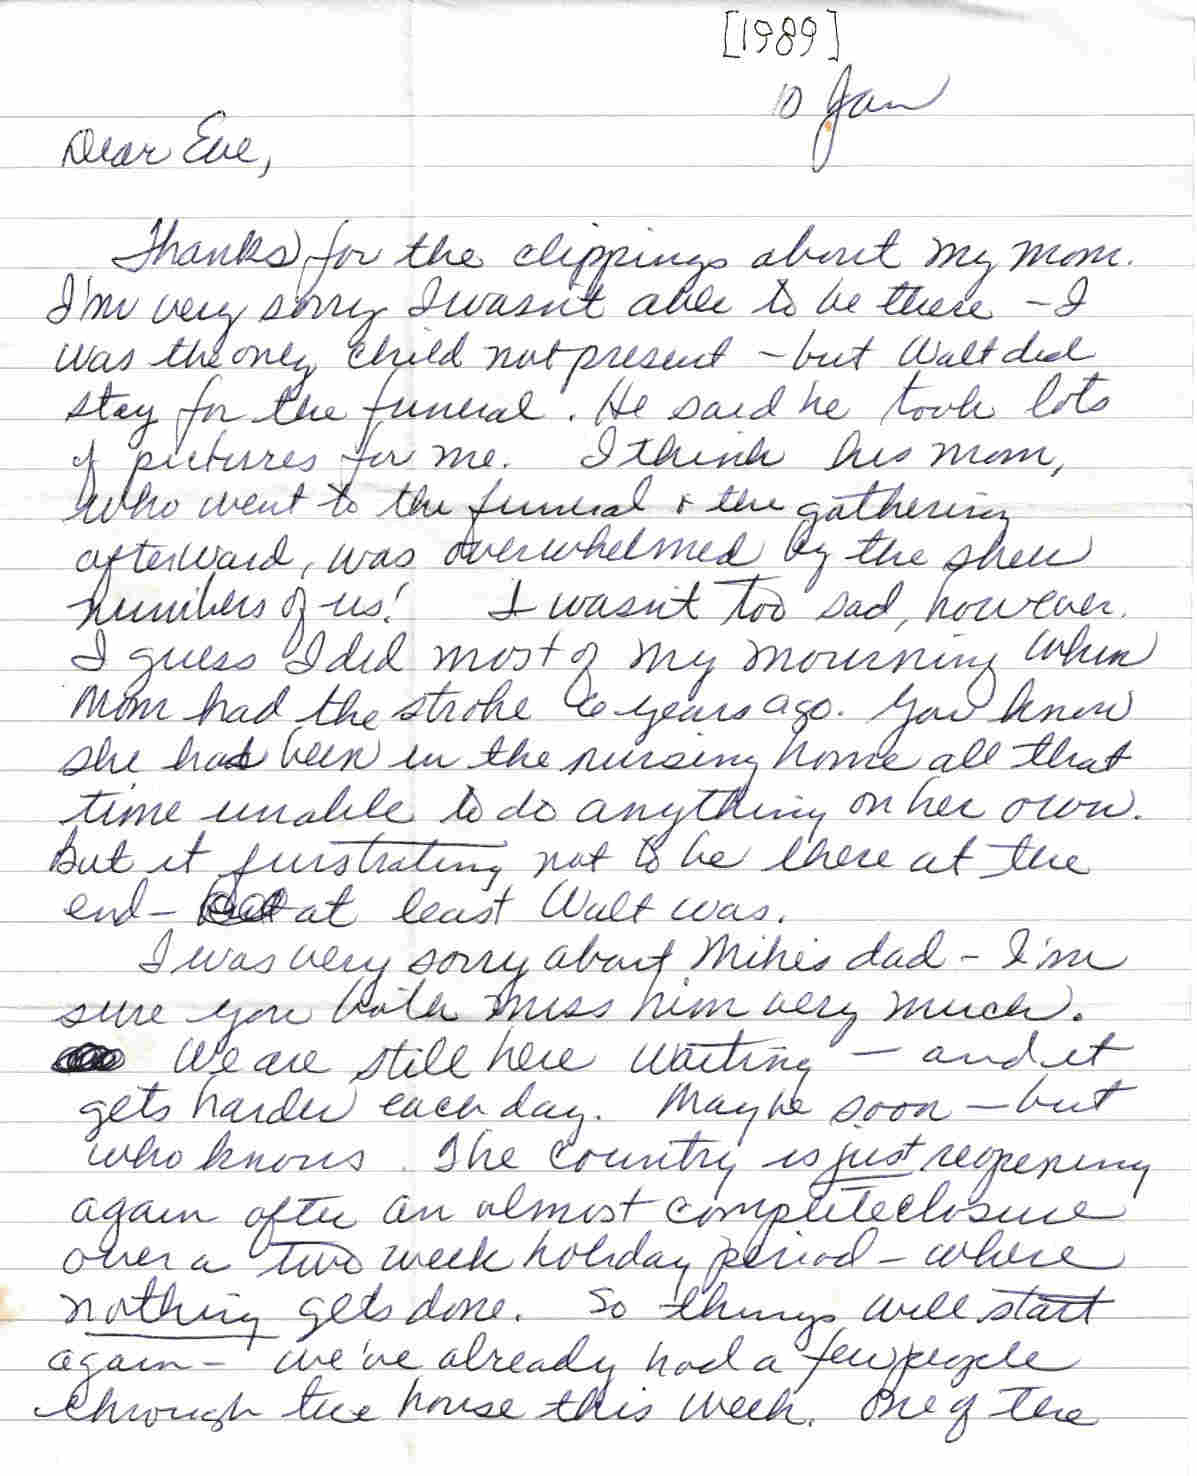 [1989]
10 Jan
Dear Eve,
Thanks for the clippings about my mom.
I'm very sorry I wasn't able to be there - I
was the only child not present - but Walt did
stay for the funeral. He said he took lots
of pictures for me. I think his mom,
who went to the funeral & the gathering
afterward, was overwhelmed by the sheer
numbers of us! I wasn't too sad, however.
I guess I did most of my mourning when
Mom had the stroke 6 years ago. You know
she had been in the nursing home all that
time unable to do anything on her own.
But it furstrating not to be there at the
end - at least Walt was.
I was very sorry about Mike's dad - I'm
sure you both miss him very much.
We are still here waiting - and it
gets harder each day. Maybe soon - but
who knows. The country is just reopening
again after an almost complete closure
over a two week holiday period - where
nothing gets done. So things will start
again - we've already had a few people
through the house this week. One of the